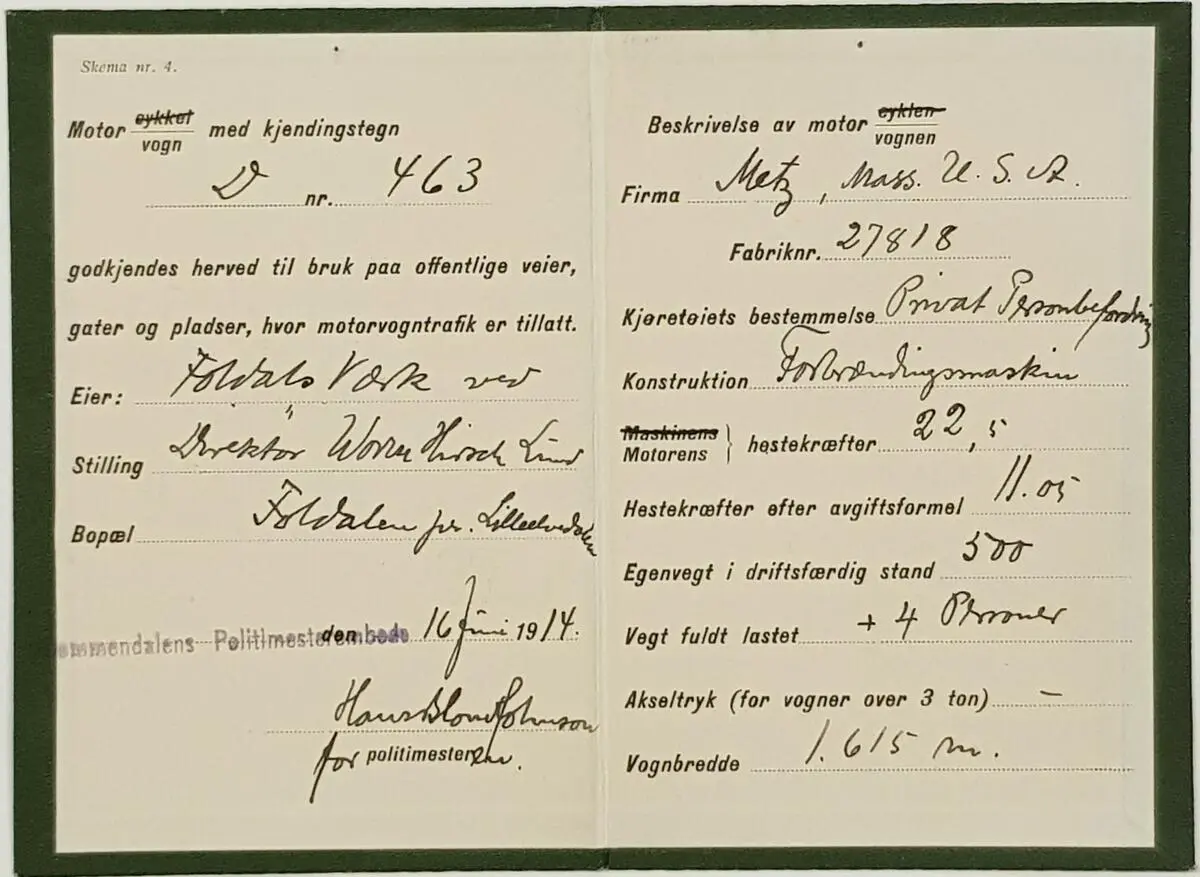 Skema nr. 4.
Motor cykkel
vogn
med kjendingstegn
D nr. 463
godkjendes herved til bruk paa offentlige veier,
gater og pladser, hvor motorvogntrafik er tillatt.
Eier: Foldals Værk ved
Stilling Direktör Worm Hirsch Lund
Bopæl Foldalen pr. Lilleelvedalen
ommendalens Politimesterembede den 16 Juni 1914.
Hans Blom
for politimesteren.
Beskrivelse av motor cyklen
vognen
Firma Metz, Mass. U. S. A.
Fabriknr. 27818
Kjøretøiets bestemmelse Privat Personbefordring
Konstruktion Forbrændingsmaskin
Maskinens
Motorens } hestekræfter 22,5
Hestekræfter efter avgiftsformel 11.05
Egenvegt i driftsfærdig stand 500
Vegt fuldt lastet + 4 Personer
Akseltryk (for vogner over 3 ton) —
Vognbredde 1.615 m.